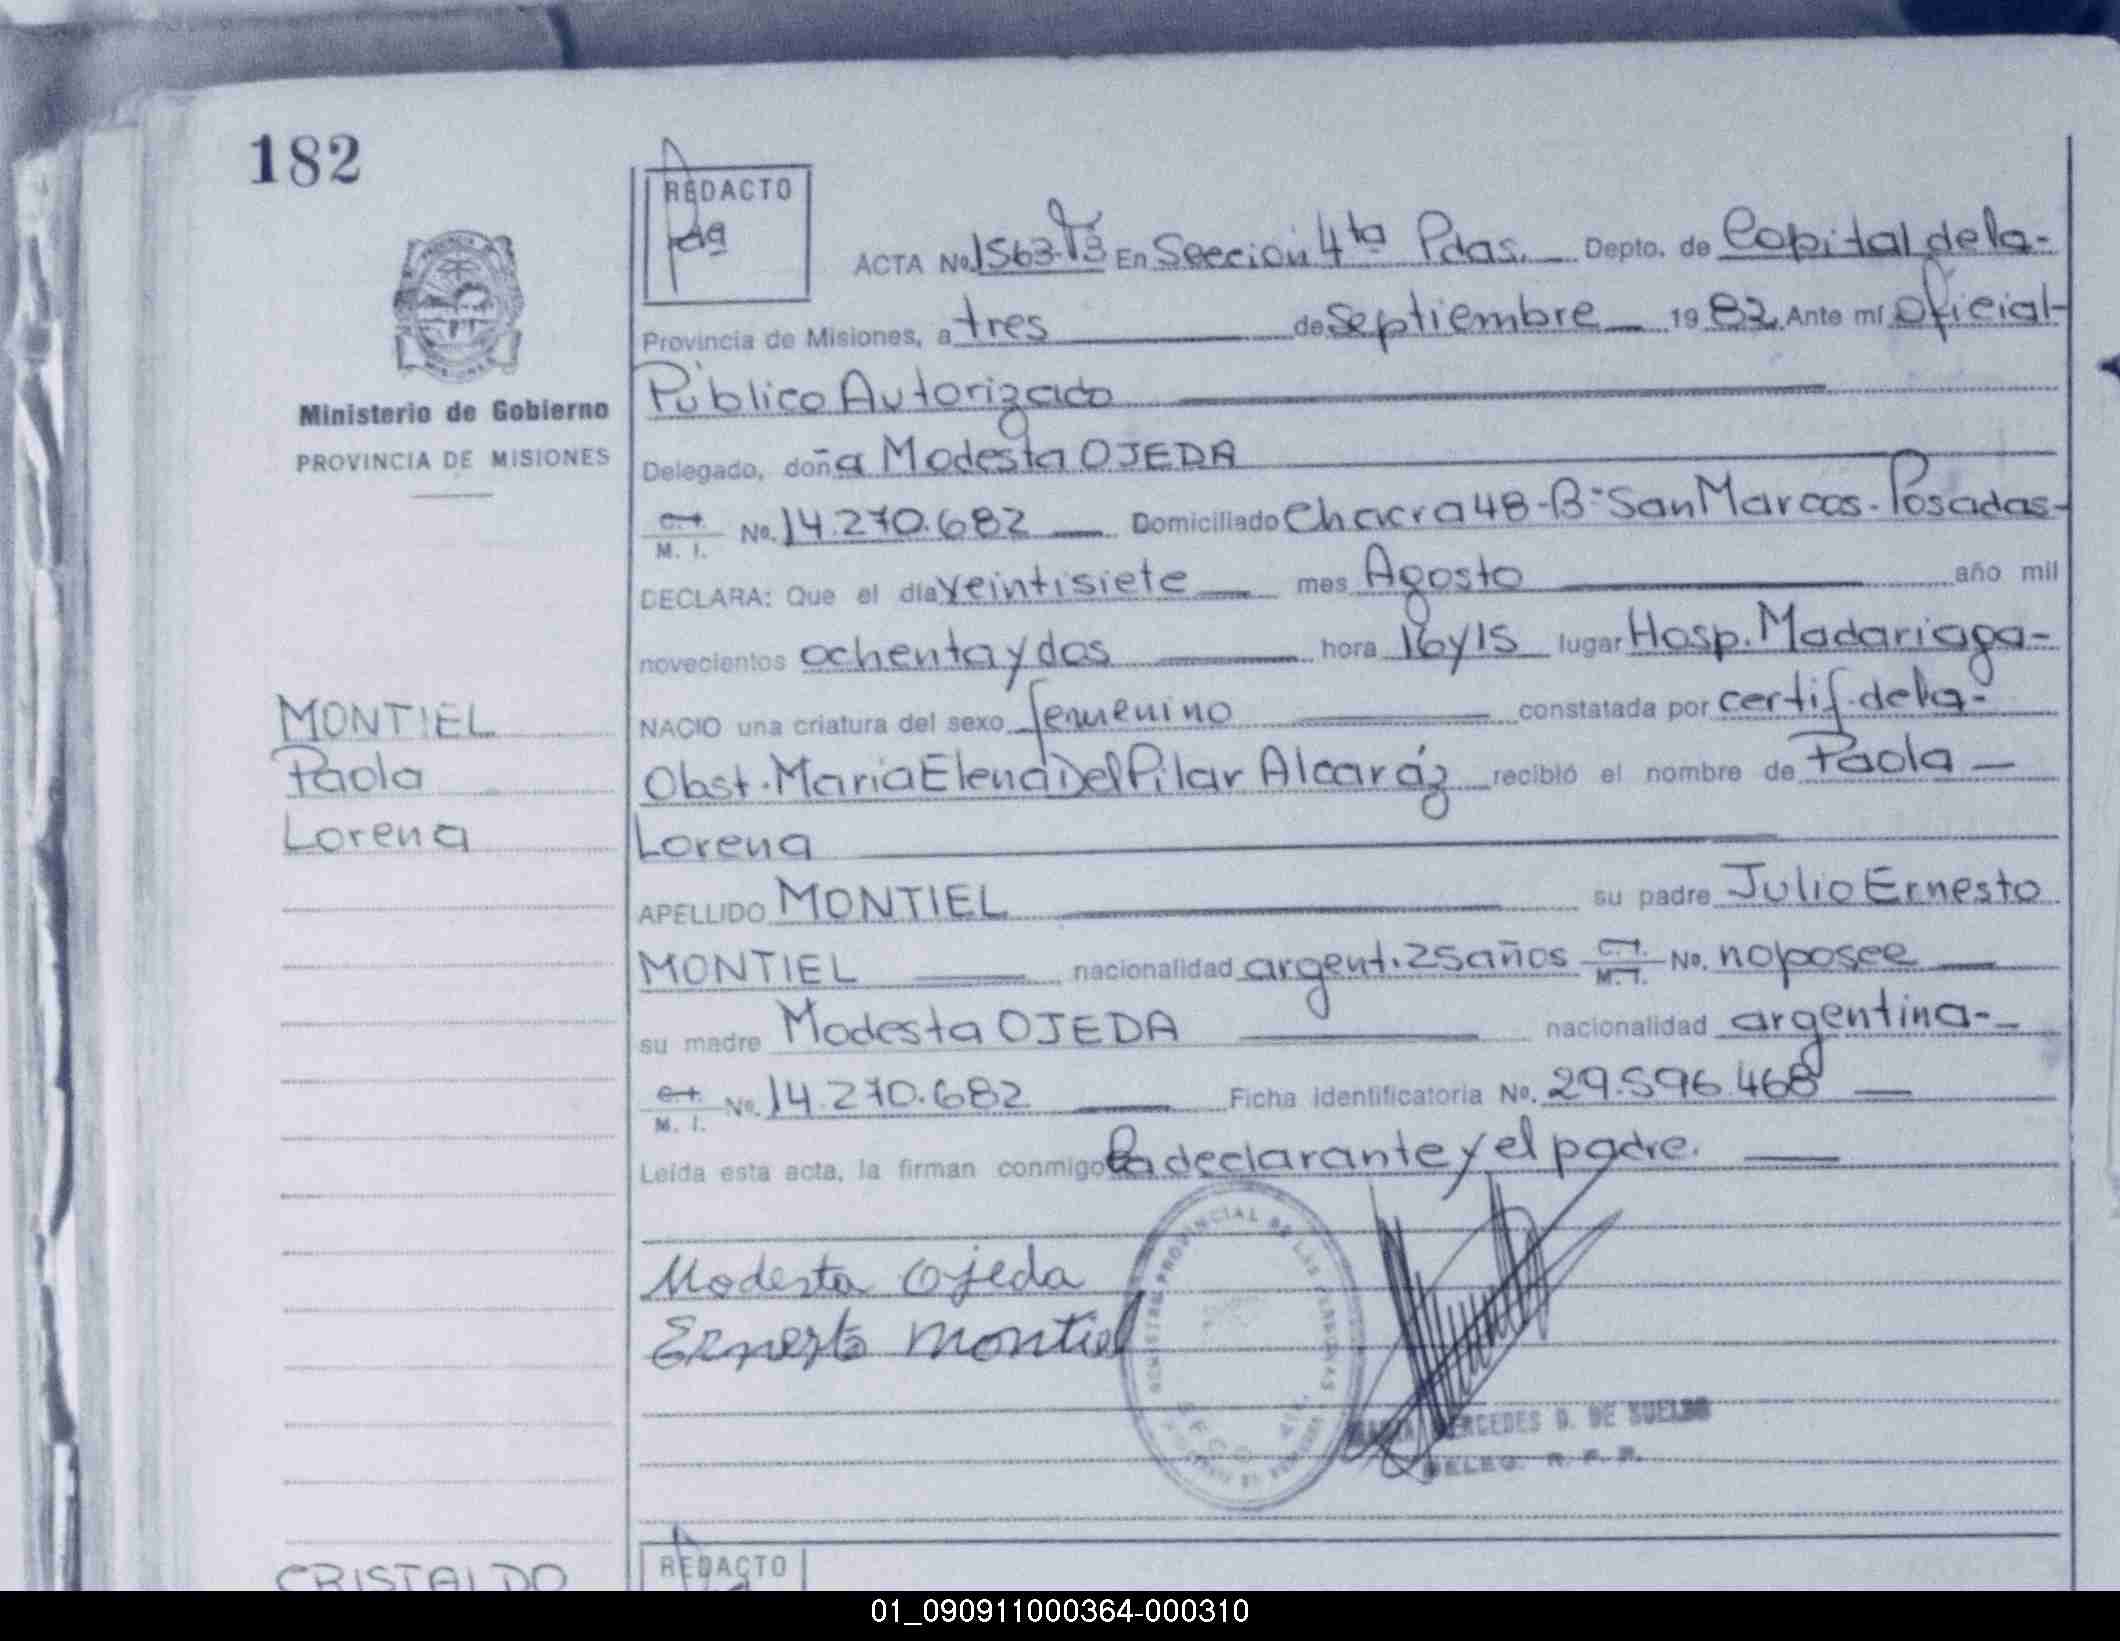 182
REDACTO
ACTA No. 1563. T3 En Sección 4ta Pdas. Depto. de Capital de la-
Provincia de Misiones, a tres de Septiembre 1982. Ante mí Oficial-
Público Autorizado
Ministerio de Gobierno
PROVINCIA DE MISIONES
Delegado, doña Modesta OJEDA
C.I. M. I. No. 14.270.682 Domiciliado Chacra 48-B-San Marcos-Posadas-
DECLARA: Que el día veintisiete mes Agosto año mil
novecientos ochenta y dos hora 16 y 15 lugar Hosp. Madariaga-
MONTIEL
Paola
Lorena
NACIO una criatura del sexo femenino constatada por certif. de la-
Obst. María Elena Del Pilar Alcaráz recibió el nombre de Paola
Lorena
APELLIDO MONTIEL su padre Julio Ernesto
MONTIEL nacionalidad argent. 25 años C.I. M.I. No. no posee
su madre Modesta OJEDA nacionalidad argentina-
C.I. M. I. No. 14.270.682 Ficha identificatoria No. 29.596.468
Leída esta acta, la firman conmigo la declarante y el padre.
Modesta Ojeda
Ernesto Montiel
REGISTRO PROVINCIAL DE LAS PERSONAS
MARIA MERCEDES D. DE SUELDO
DELEG. R. P. P.
CRISTALDO
REDACTO
01_090911000364-000310